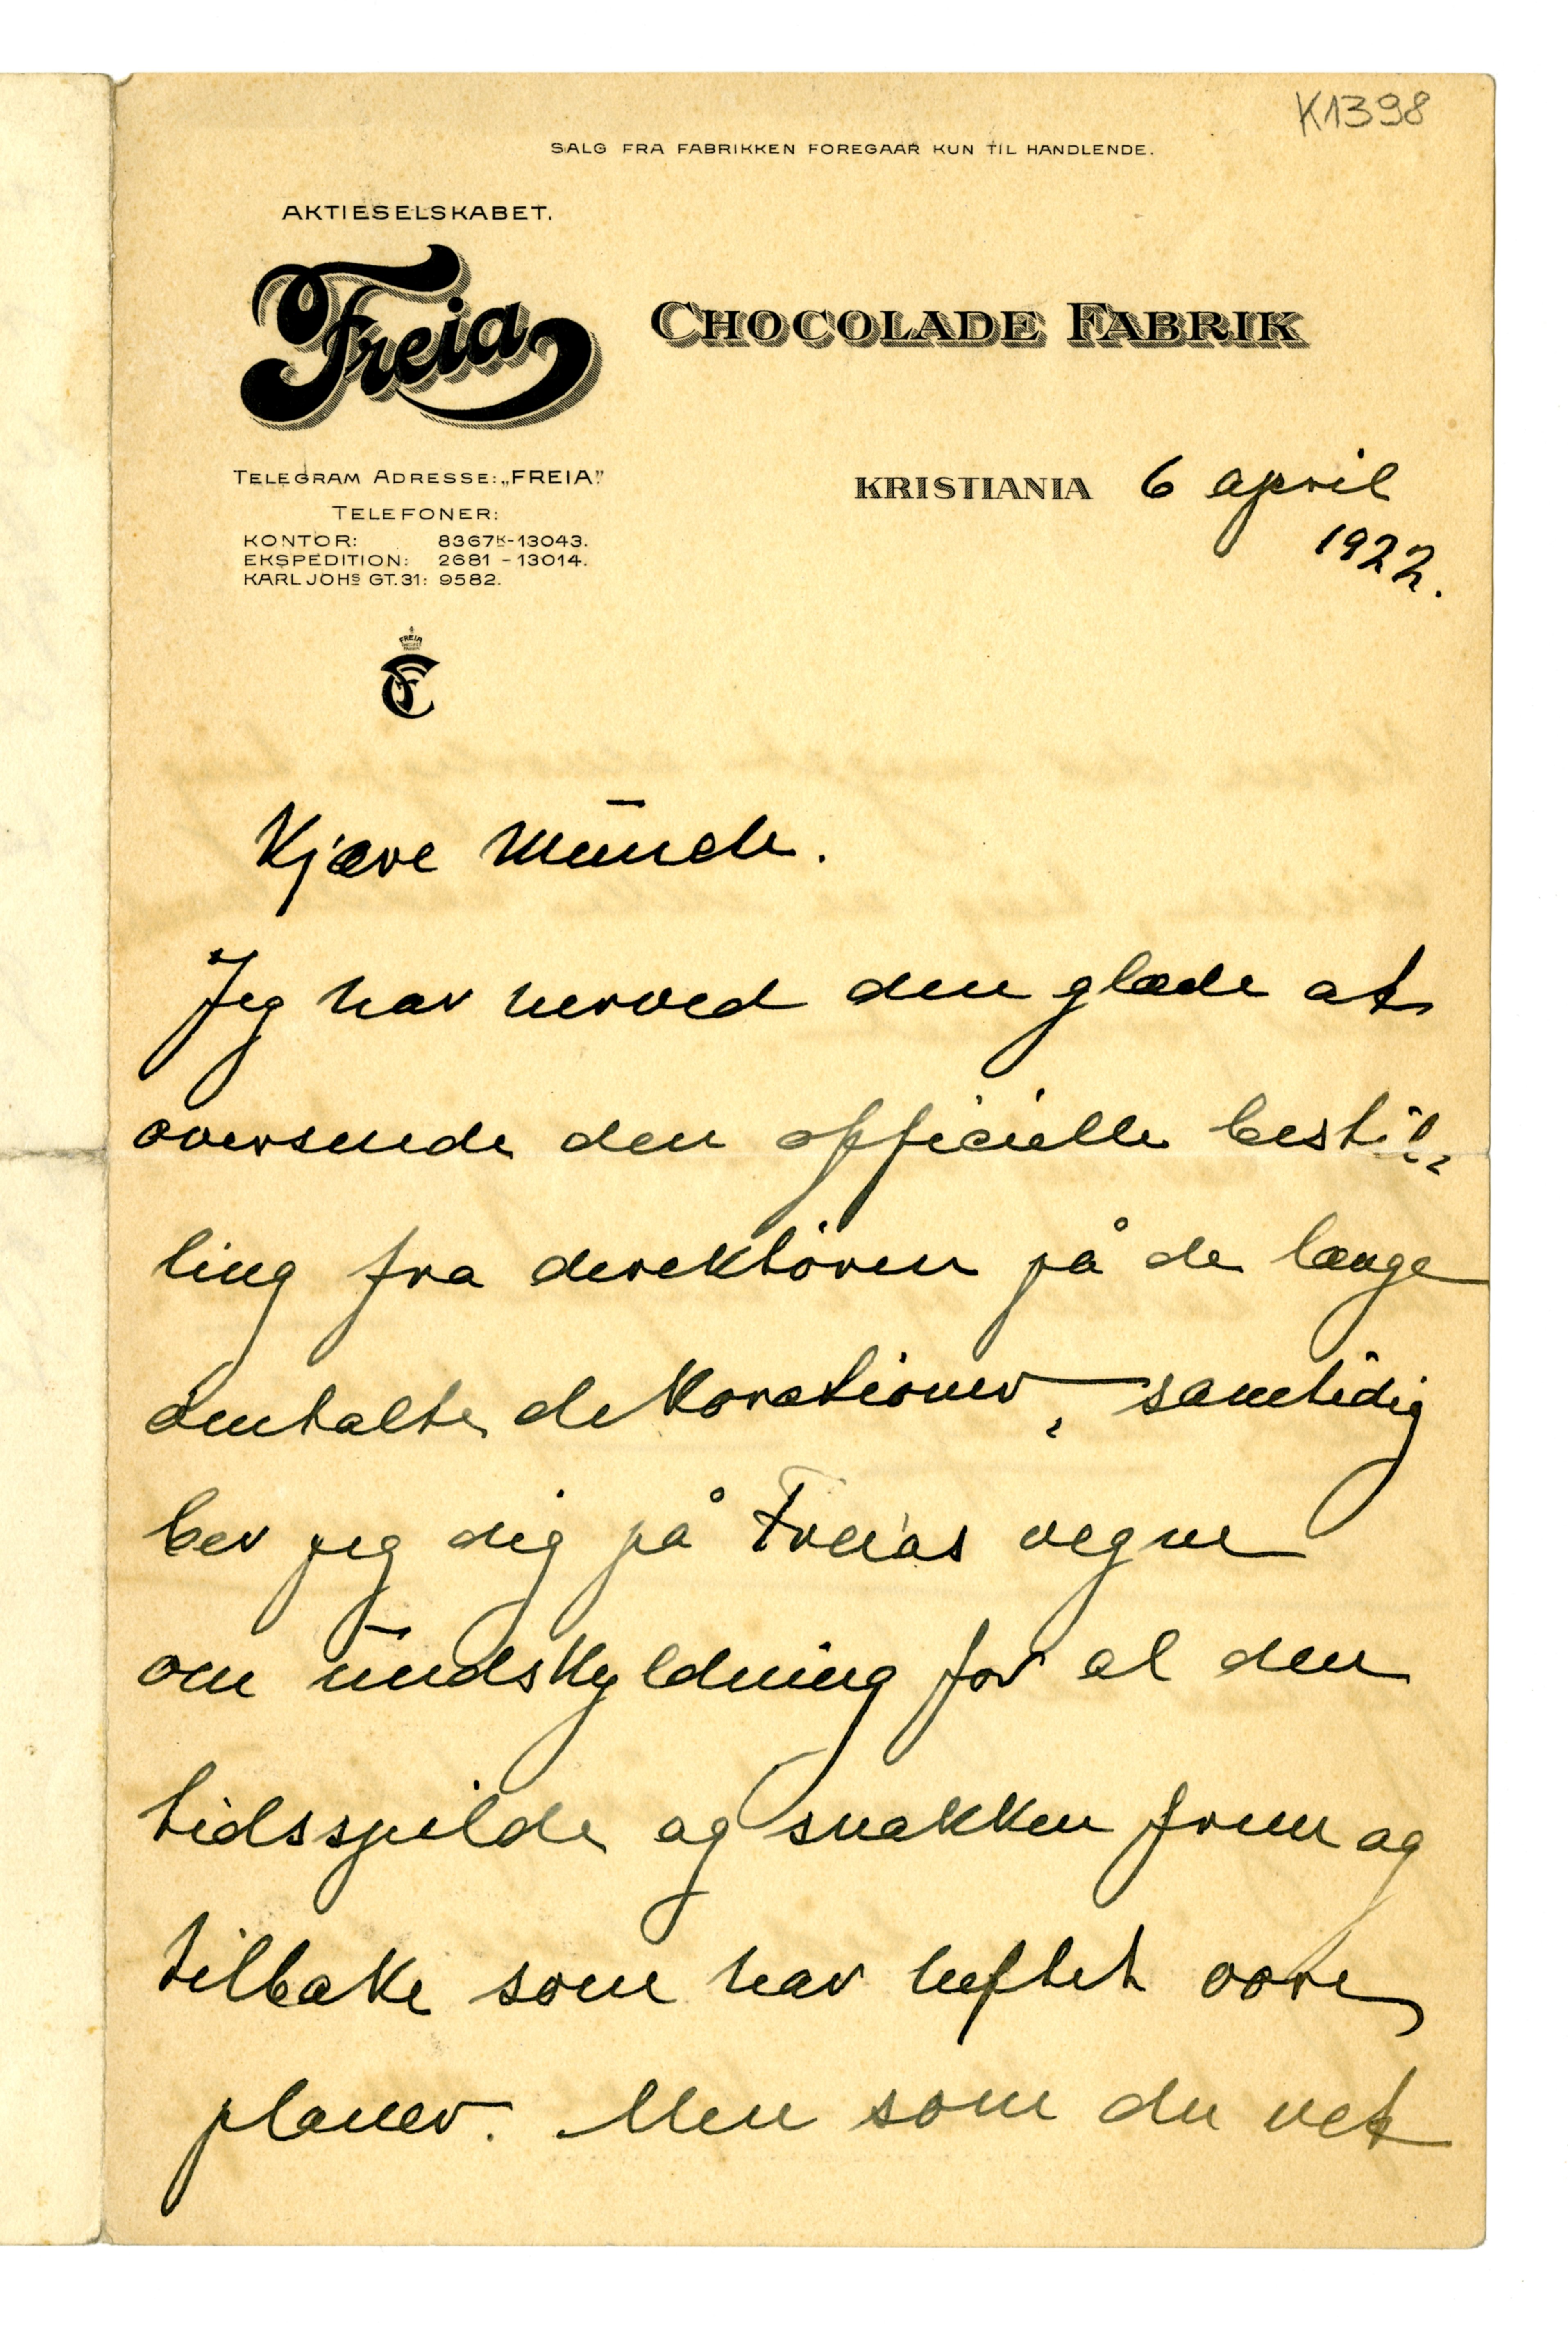 K1398
SALG FRA FABRIKKEN FOREGAAR KUN TIL HANDLENDE.
AKTIESELSKABET.
Freia CHOCOLADE FABRIK
TELEGRAM ADRESSE: „FREIA"
TELEFONER:
KONTOR: 8367K-13043.
EKSPEDITION: 2681 - 13014.
KARL JOHS GT. 31: 9582.
KRISTIANIA 6 april
1922.
FREIA
Kjære Munch.
Jeg har herved den glæde at
oversende den officielle bestil-
ling fra direktören på de længe
omtalte dekorationer, samtidig
ber jeg dig på Freias vegne
om undskyldning for al den
tidsspilde og snakken frem og
tilbake som har heftet vore
planer. Men som du vet